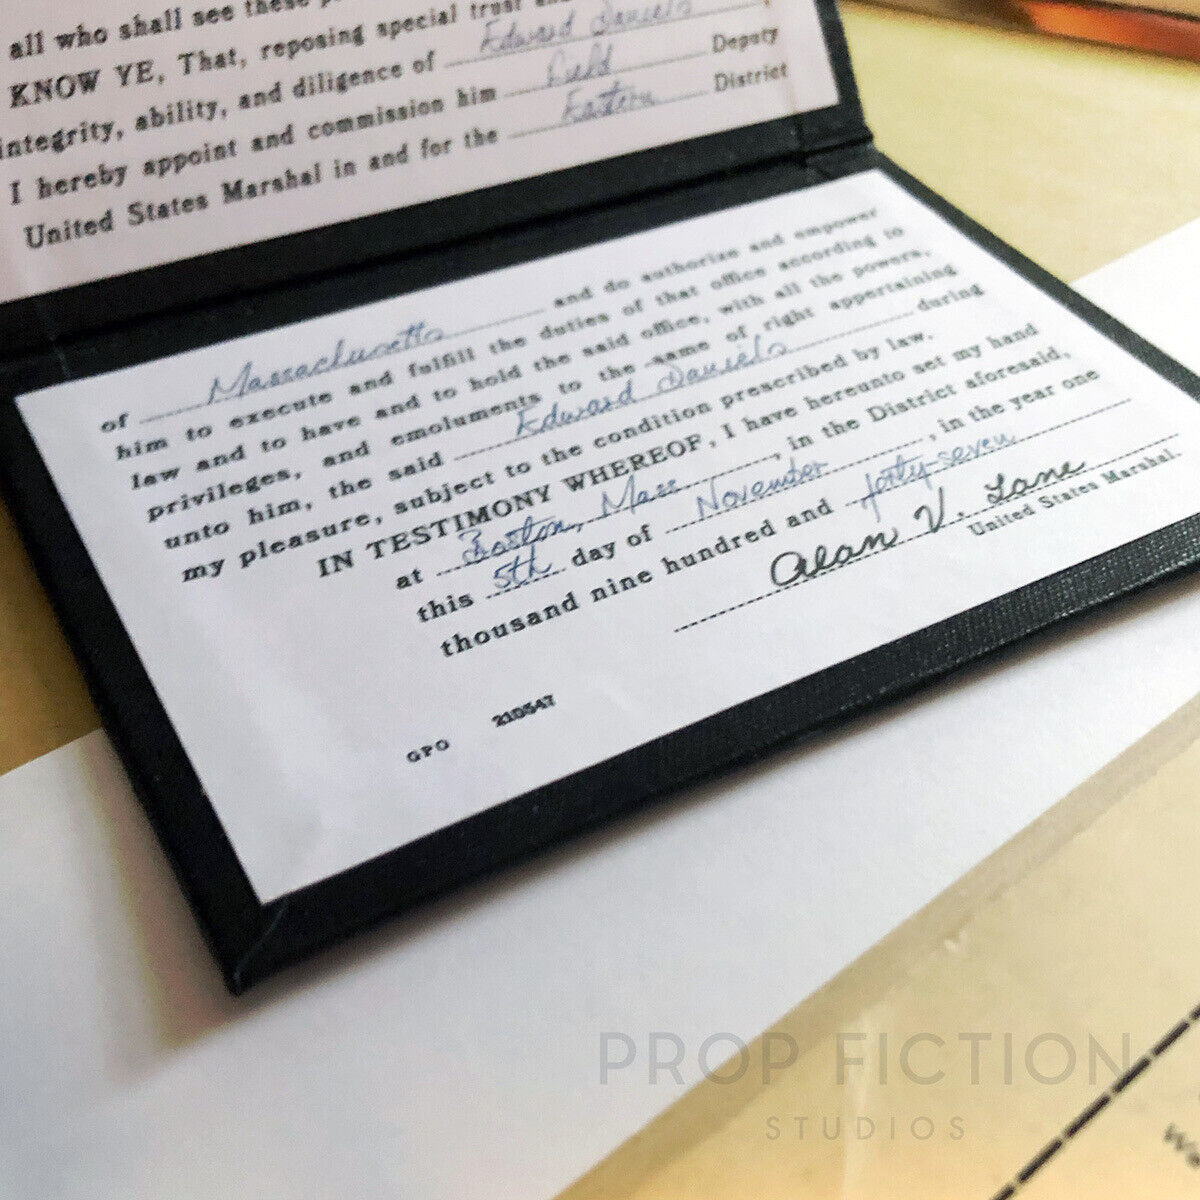 all who shall see these
KNOW YE, That, reposing special trust
integrity, ability, and diligence of Edward Daniels
I hereby appoint and commission him Field Deputy
United States Marshal in and for the Eastern District
of Massachusetts and do authorize and empower
him to execute and fulfill the duties of that office according to
law and to have and to hold the said office, with all the powers,
privileges, and emoluments to the same of right appertaining
unto him, the said Edward Daniels during
my pleasure, subject to the condition prescribed by law.
IN TESTIMONY WHEREOF, I have hereunto set my hand
at Boston, Mass. , in the District aforesaid,
this 5th day of November , in the year one
thousand nine hundred and forty-seven
Alan V. Lane
United States Marshal.
GPO 210547
PROP FICTION
STUDIOS